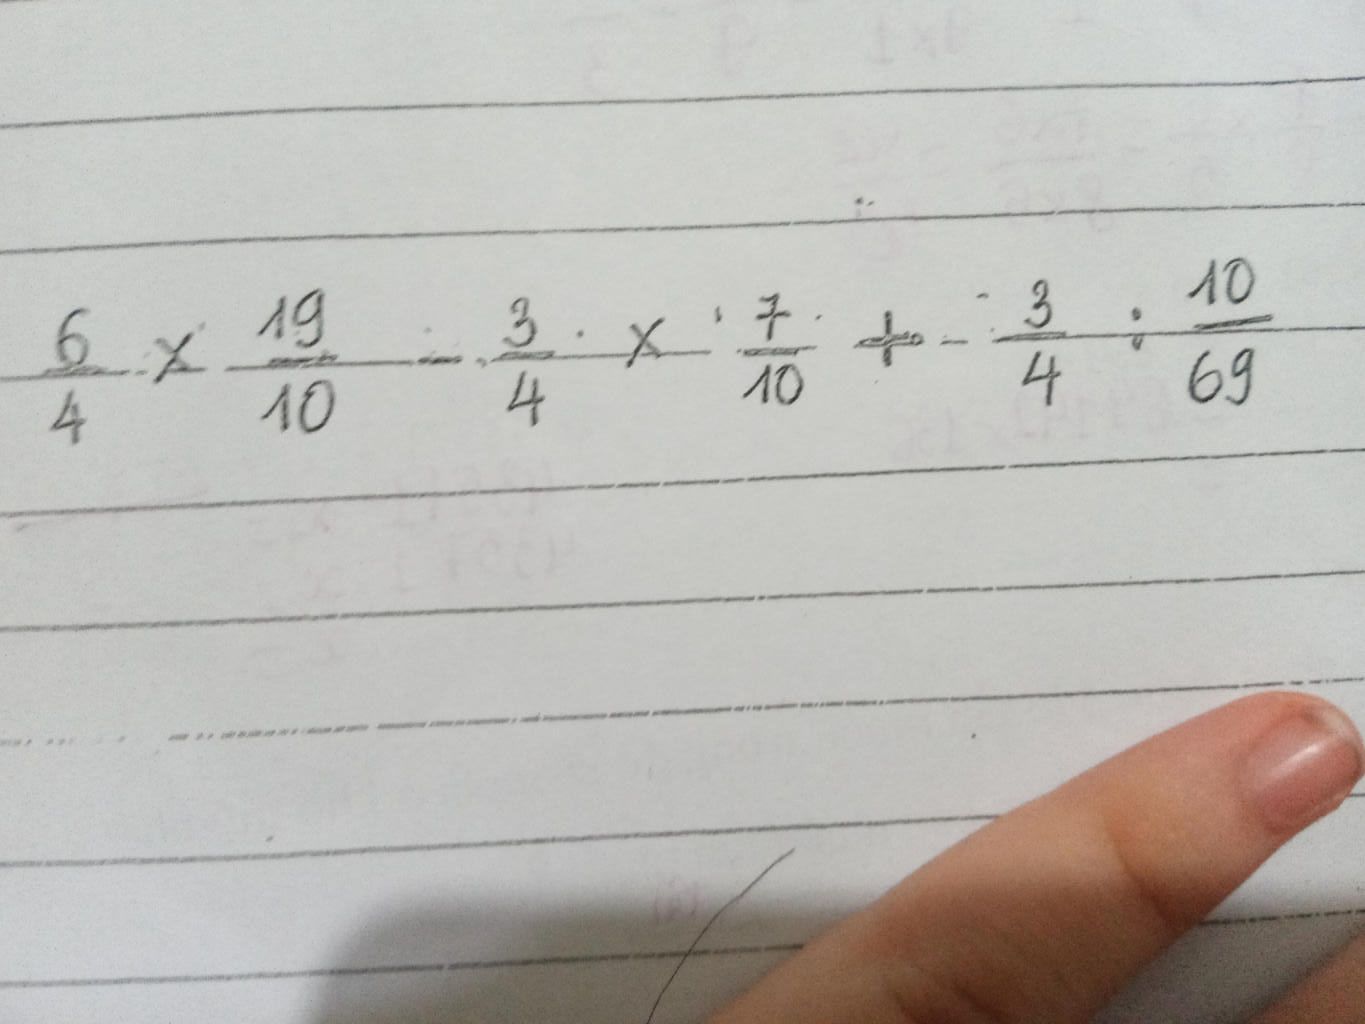 6/4 x 19/10 - 3/4 x 7/10 + - 3/4 : 10/69